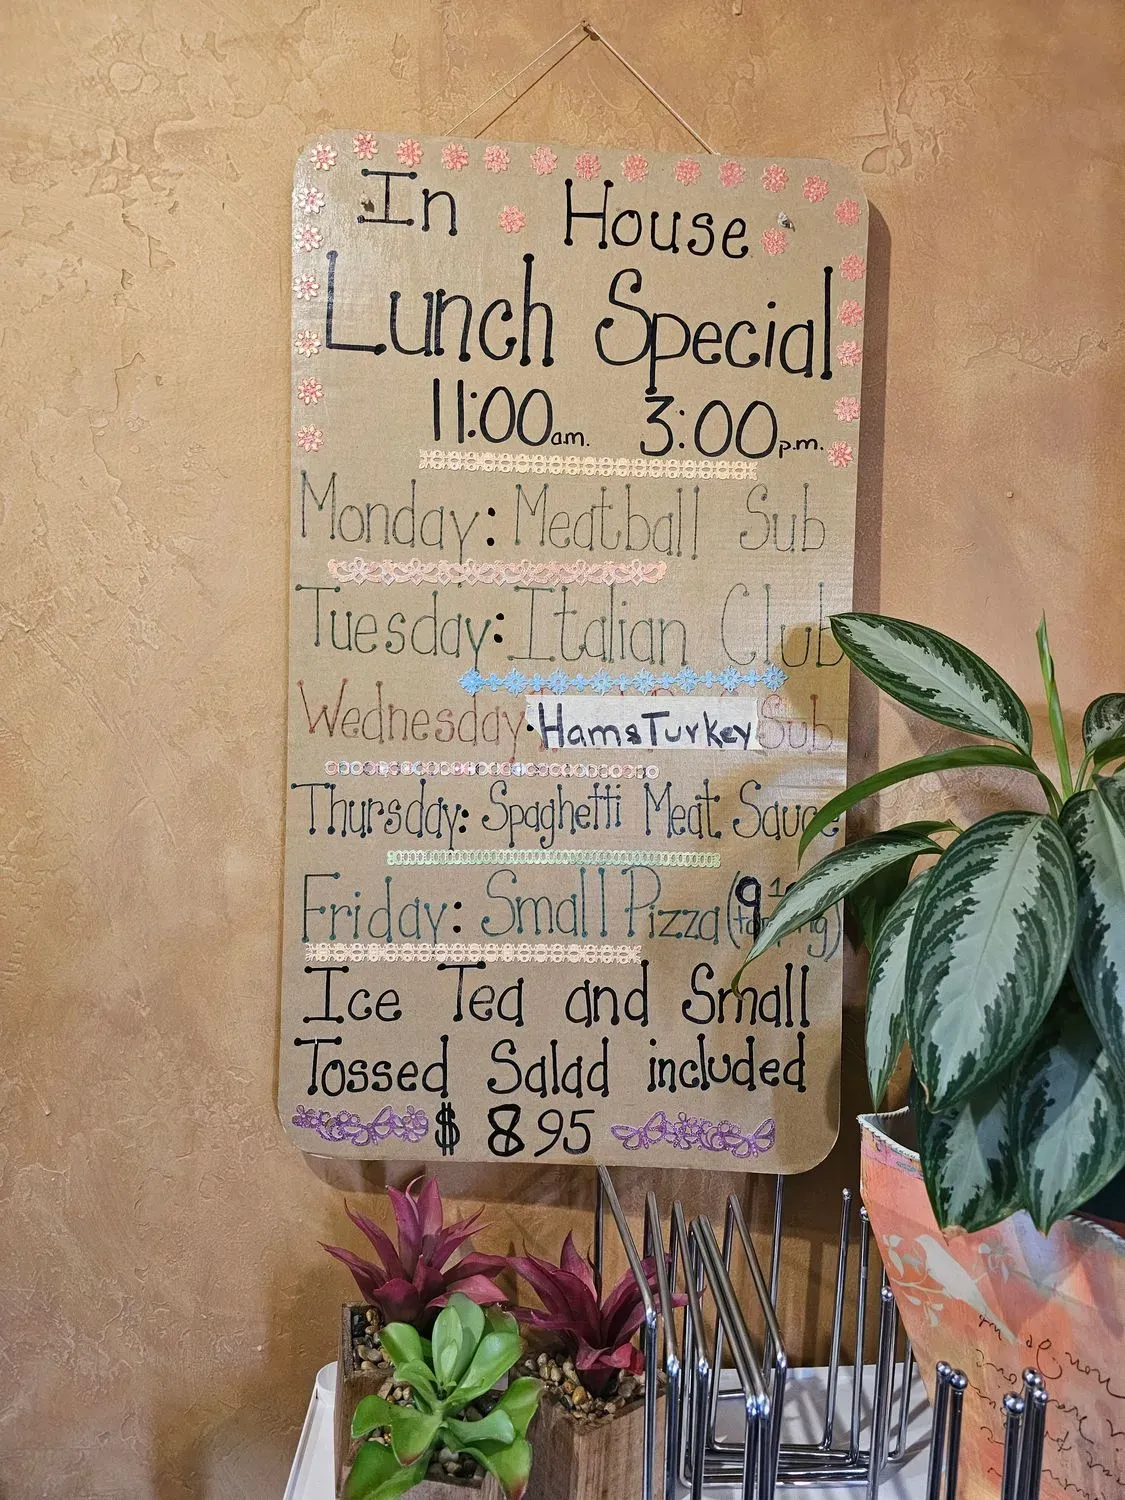 In House
Lunch Special
11:00 a.m. 3:00 p.m.
Monday: Meatball Sub
Tuesday: Italian Club
Wednesday: Ham & Turkey Sub
Thursday: Spaghetti Meat Sauce
Friday: Small Pizza (9
Ice Tea and Small
Tossed Salad included
$ 8.95